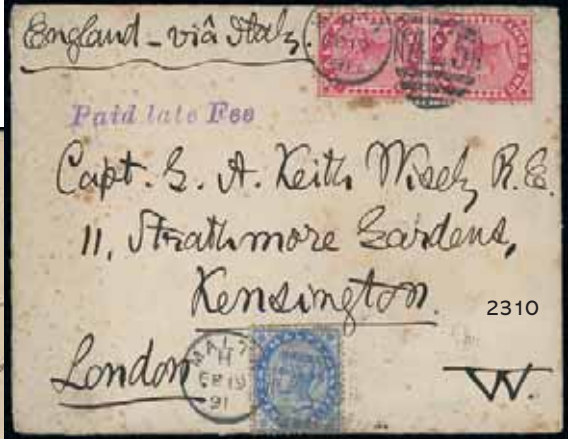 England - viâ Italy.
Paid late Fee
Capt. G. A. Keith Wisely R.E.
11, Strathmore Gardens,
Kensington.
2310
London
W.
MALTA
H
FE 19
91